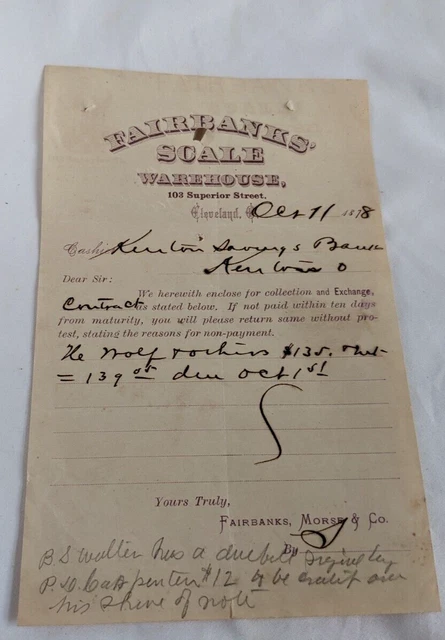 FAIRBANKS'
SCALE
WAREHOUSE,
103 Superior Street,
Cleveland, O. Oct 11 1878
Cash. Kenton Savings Bank
Kenton O
Dear Sir:
We herewith enclose for collection and Exchange,
Contract as stated below. If not paid within ten days
from maturity, you will please return same without pro-
test, stating the reasons for non-payment.
He Wolf $135.
= 139 05 due Oct 1st
Yours Truly,
FAIRBANKS, MORSE & CO.
By
B S Walter has a due bill by
P. D. Carpenter $12 to be credit on
his share of note